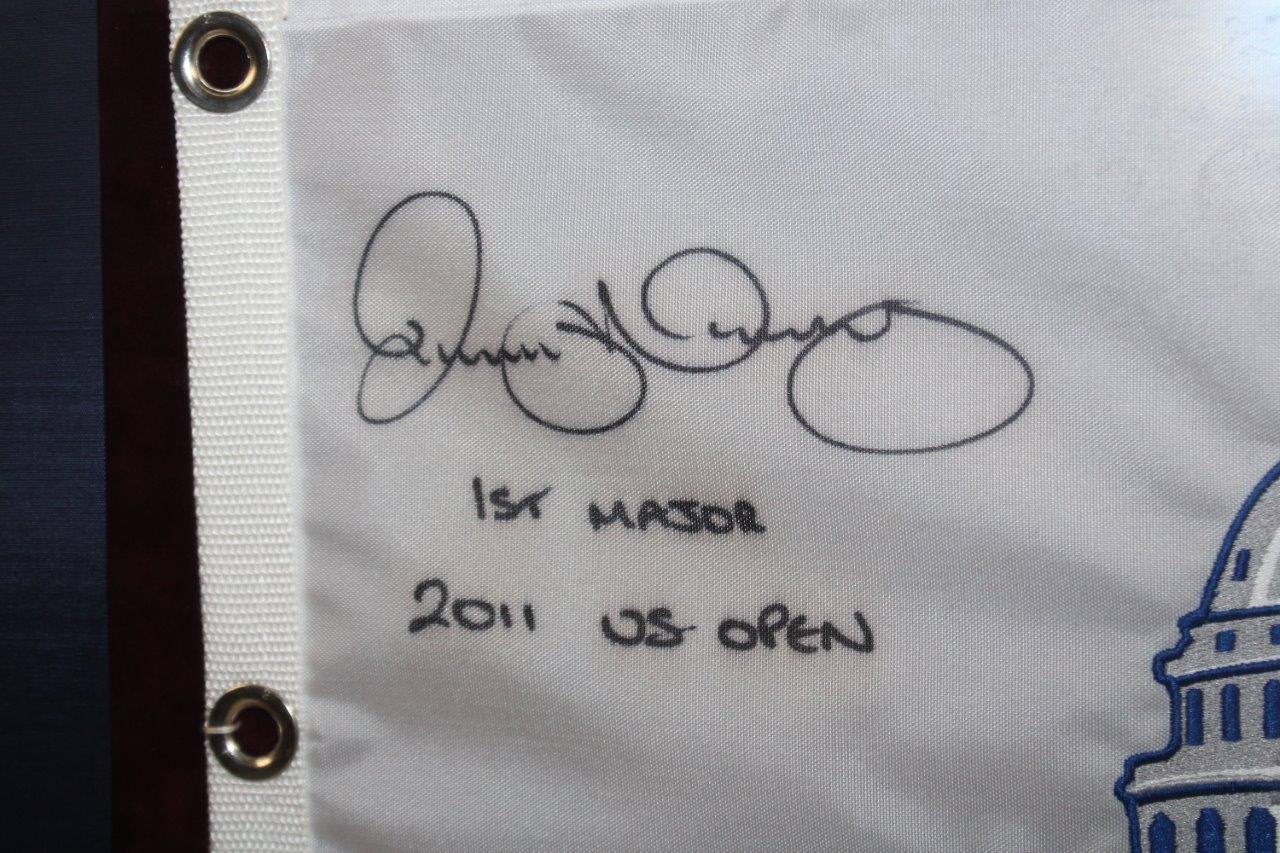 1ST MAJOR
2011 US OPEN